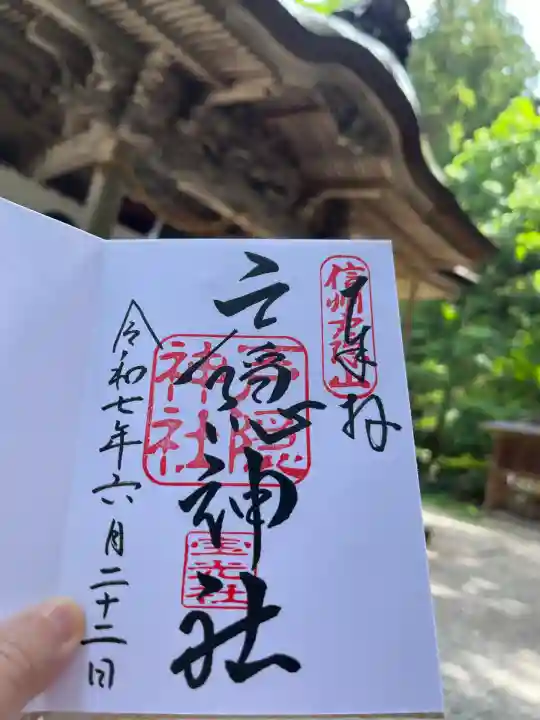 奉拝
信州戸隠山
戸隠神社
戸隠神社
宝光社
令和七年六月二十二日